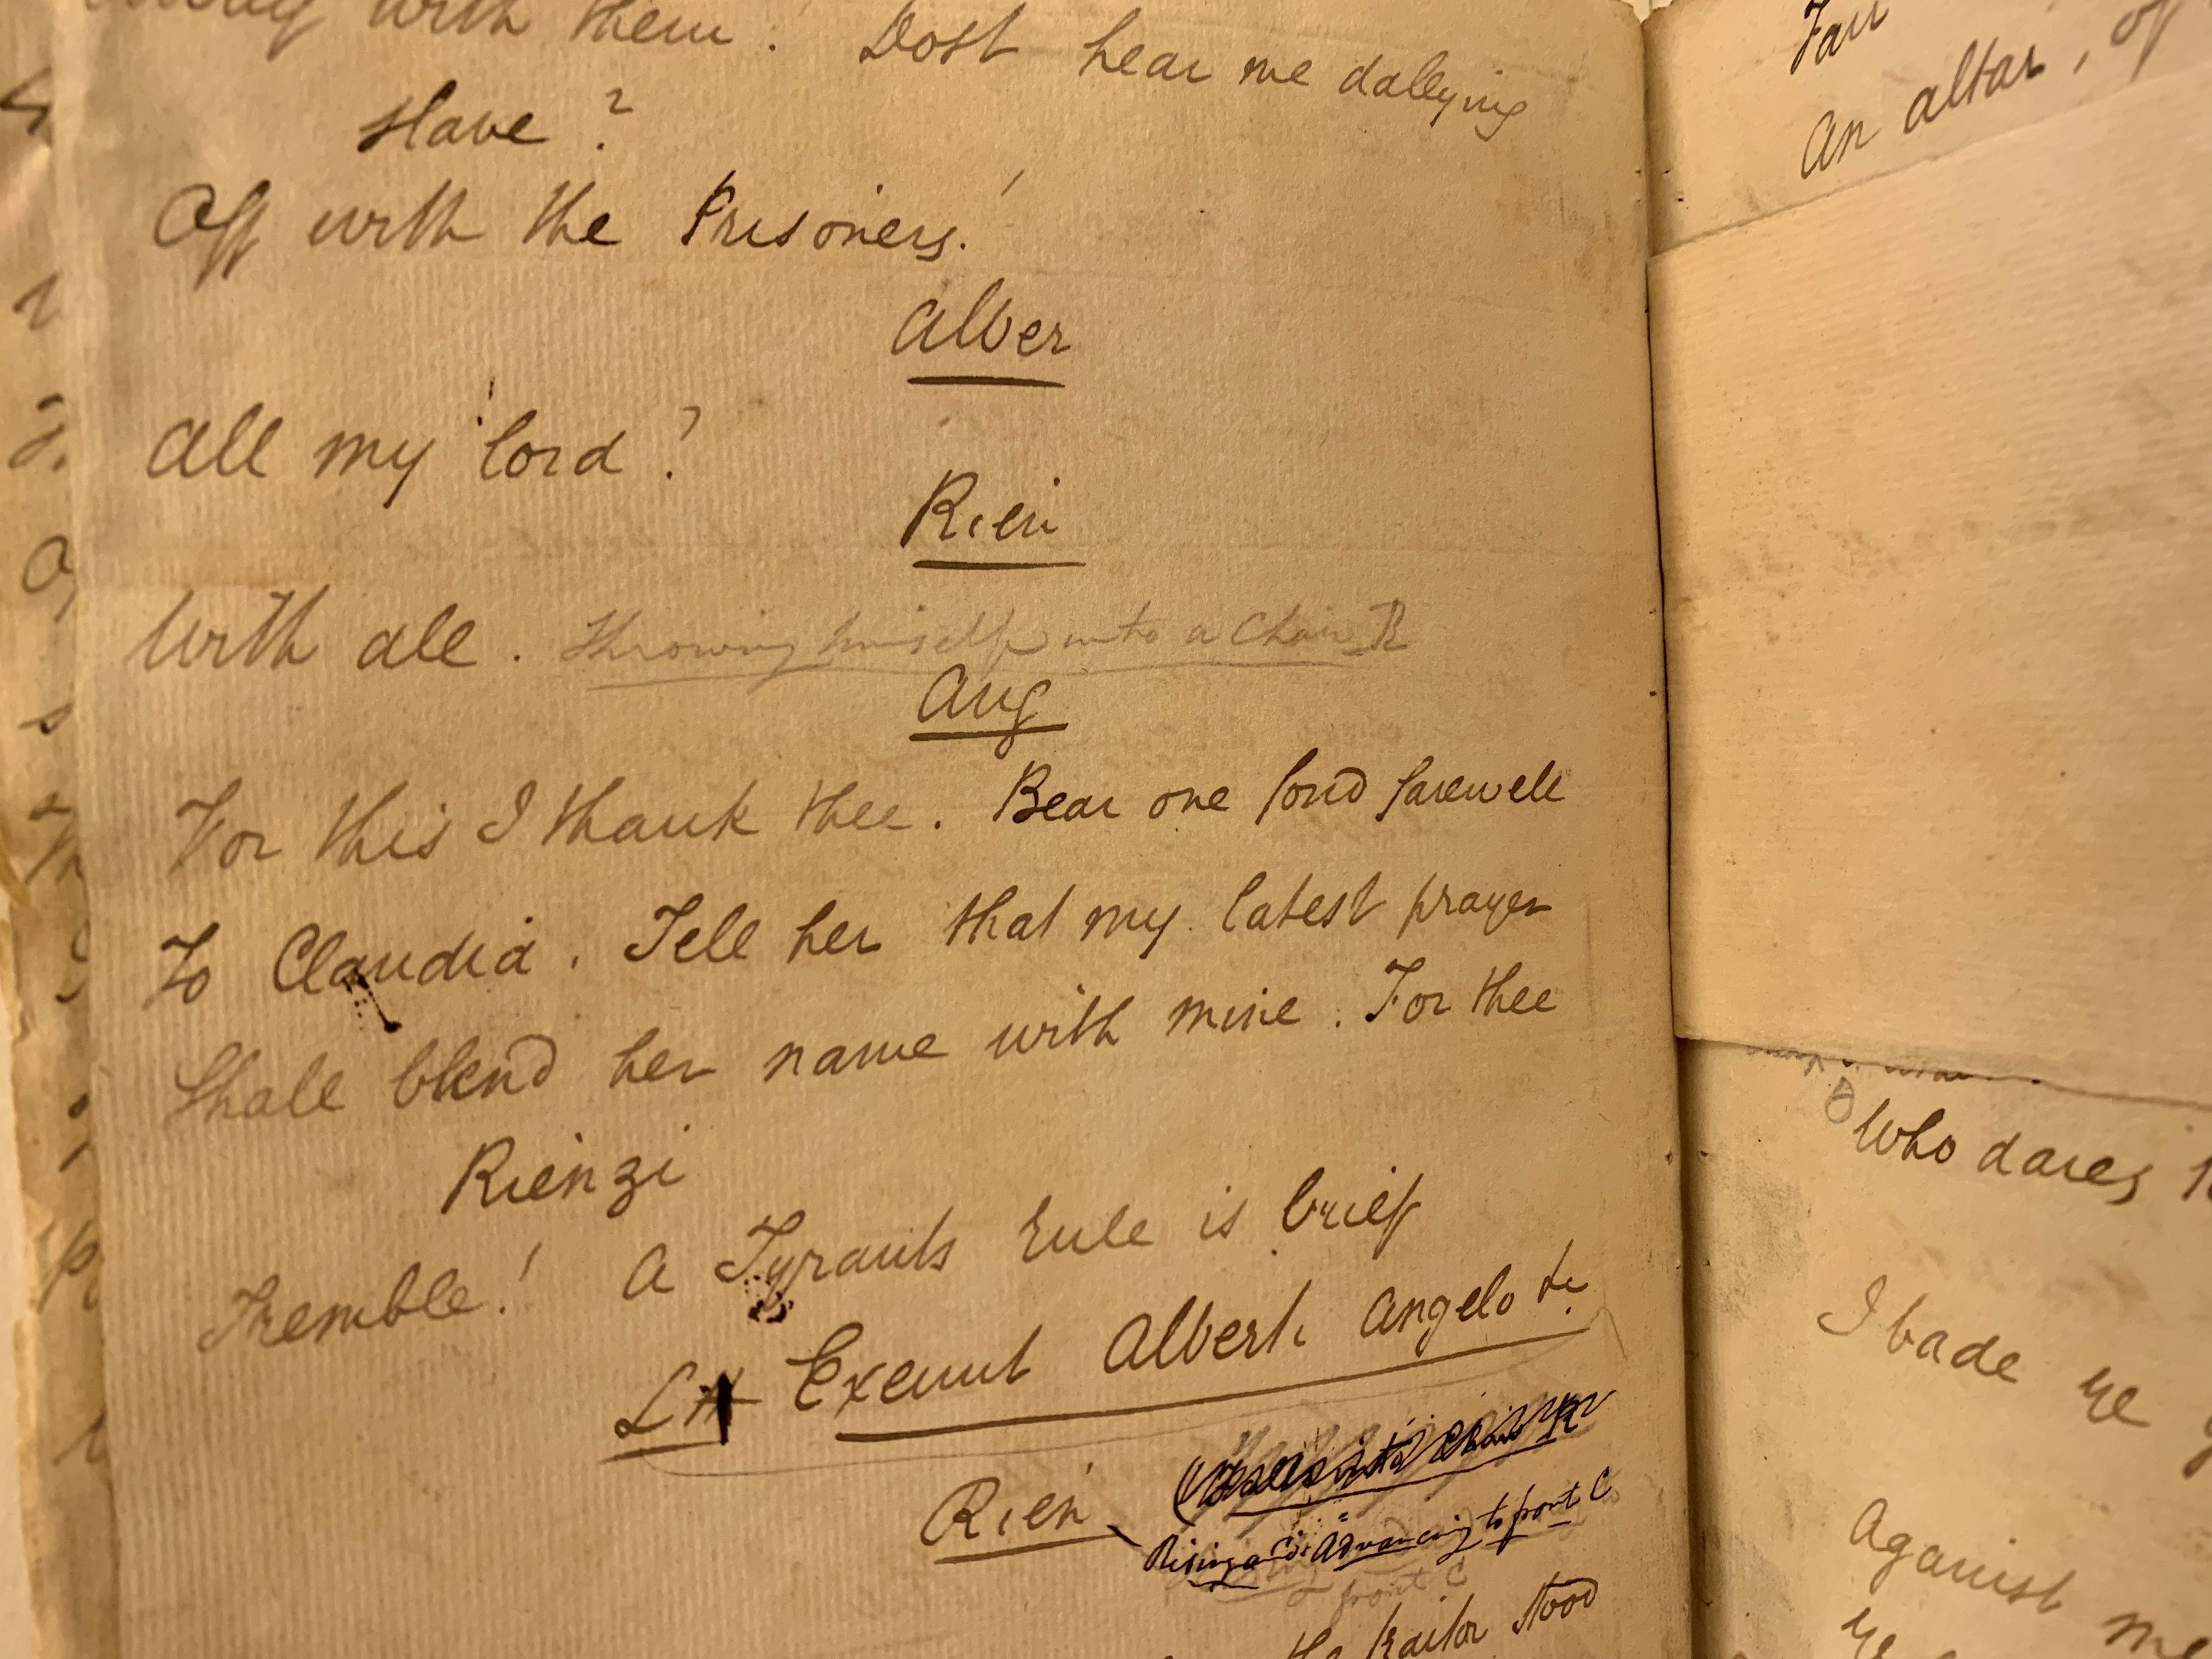 with them! Dost hear me dallying
slave?
Off with the Prisoners!
Alber
All my lord?
Rien
With all. Throwing himself into a Chair R
Ang
For this I thank thee. Bear one fond farewell
To Claudia. Tell her that my latest prayer
Shall blend her name with mine. For thee
Rienzi
Tremble! A Tyrants rule is brief
LH Exeunt Alberti Angelo &c.
Rien
Rising and Advancing to front C
front C
the traitor stood
Fair
An altar, of
Who dares
I bade ye
Against me
Ye